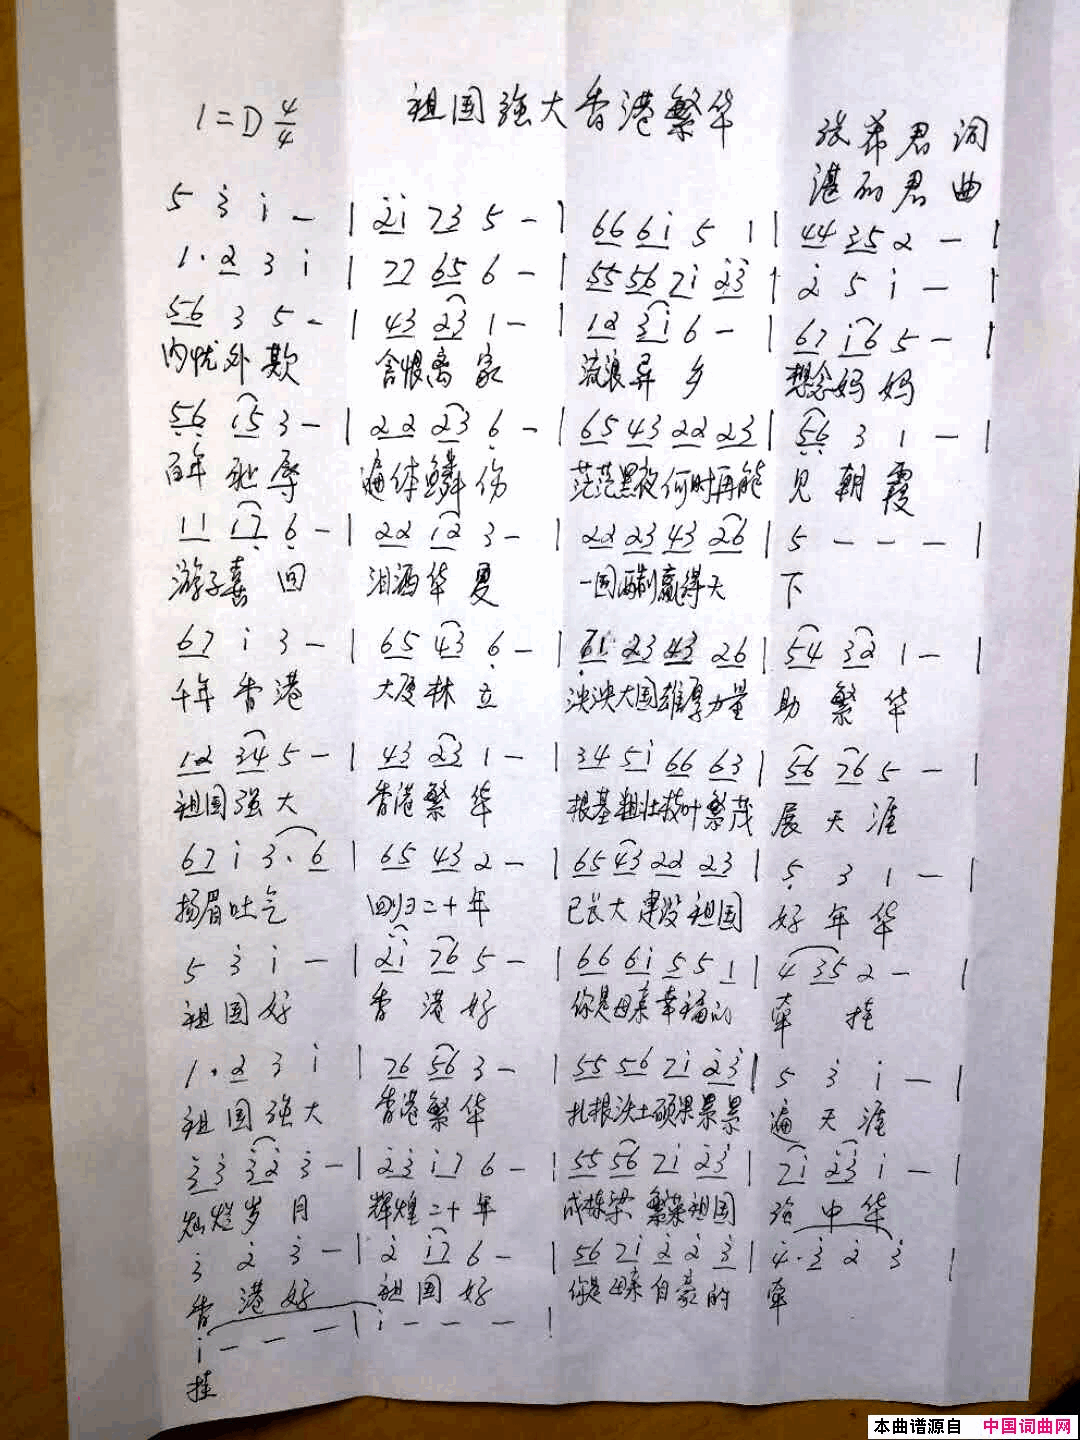 祖国强大香港繁华
1=D 4/4
张希君 词
湛 君 曲
5 3̇ i - | 2̇i 73 5 - | 66 6i 5 1 | 44 35 2 - |
1·2 3 i | 77 65 6 - | 55 56 7i 2̇3̇ | 2̇ 5 i - |
56 3 5 - | 43 23 1 - | 12 3i 6 - | 67 i6 5 - |
内忧外欺 含恨离家 流浪异乡 想念妈妈
5̣6̣ 15 3 - | 22 23 6̣ - | 65 43 22 23 | 5̣6̣ 3 1 - |
百年耻辱 遍体鳞伤 茫茫黑夜何时再能 见朝霞
11 17̣ 6̣ - | 22 12 3 - | 22 23 43 26 | 5 - - - |
游子喜回 泪洒华夏 一国两制赢得天 下
67 i 3 - | 65 43 6̣ - | 6̣1 23 43 26 | 54 32 1 - |
千年香港 大厦林立 泱泱大国雄厚力量 助繁华
12 34 5 - | 43 23 1 - | 34 5i 66 63 | 56 76 5 - |
祖国强大 香港繁华 根基粗壮枝叶繁茂 展天涯
67 i 3·6 | 65 43 2 - | 65 43 22 23 | 5̣ 3 1 - |
扬眉吐气 回归二十年 已长大建设祖国 好年华
5 3̇ i - | 2̇i 76 5 - | 66 6i 5 5 1 | 4 35 2 - |
祖国好 香港好 你是母亲幸福的 牵挂
1·2 3 i | 76 56 3 - | 55 56 7i 2̇3̇ | 5 3̇ i - |
祖国强大 香港繁华 扎根沃土硕果累累 遍天涯
3̇3̇ 3̇2̇ 3̇ - | 2̇3̇ i7 6 - | 55 56 7i 2̇3̇ | 7i 2̇3̇ i - |
灿烂岁月 辉煌二十年 成栋梁 繁荣祖国 强中华
3̇ 2̇ 3̇ - | 2̇ i7 6 - | 56 7i 2̇ 2̇ 3̇ | 4̇·3̇ 2̇ 3̇ |
香港好 祖国好 你是母亲自豪的 牵
i - - - | i - - - |
挂
本曲谱源自 中国词曲网